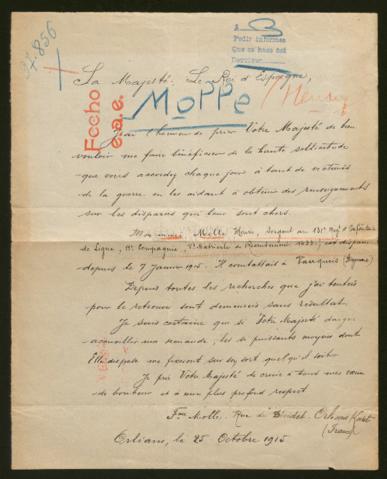 3
Pedir informes
Que se hace del
32.856
Sa Majesté Le Roi d'Espagne,
MOPPE
Fecho
J'ai l'honneur de prier Votre Majesté de bien
vouloir me faire bénéficier de la haute sollicitude
que vous accordez chaque jour à tant de victimes
de la guerre en les aidant à obtenir des renseignements
sur les disparus qui leur sont chers.
Mon mari, Molle Henri, Sergent au 131e Reg' d'Infanterie
de Ligne, 11e Compagnie, est disparu
depuis le 7 Janvier 1915. Il combattait à Vauquois
Depuis toutes les recherches que j'ai tentées
pour le retrouver sont demeurées sans résultat.
Je suis certaine que si Votre Majesté daigne
accueillir ma demande, les si puissants moyens dont
Elle dispose me fixeront sur son sort quel qu'il soit.
Je prie Votre Majesté de croire à tous mes vœux
de bonheur et à mon plus profond respect
Fme Molle, Rue de
(France)
Orléans, le 25 Octobre 1915